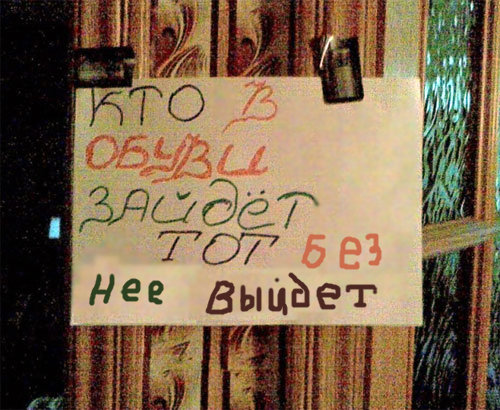 КТО В
ОБУВИ
ЗАЙДЁТ
ТОТ БЕЗ
Нее Выйдет